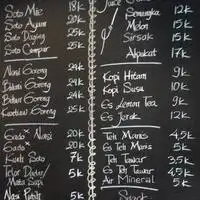 Soto Mie 18k
Soto Ayam 20k
Soto Daging 25k
Soto Campur 25k
Nasi Goreng 24k
Bihun Goreng 24k
Goreng 24k
Goreng 24k
Gado² Nasi 20k
Gado² 20k
Kueh Soto 7k
Telor Dadar/ 7k
Mata Sapi
Nasi Putih 5k
Juice
Semangka 12k
Melon 15k
Sirsak 15k
Alpukat 17k
Kopi Hitam 9k
Kopi Susu 10k
Es Lemon Tea 9k
Es Jeruk 12k
Teh Manis 4,5k
Es Teh Manis 5k
Teh Tawar 3,5k
Es Teh Tawar 4k
Air Mineral 5k
Snack